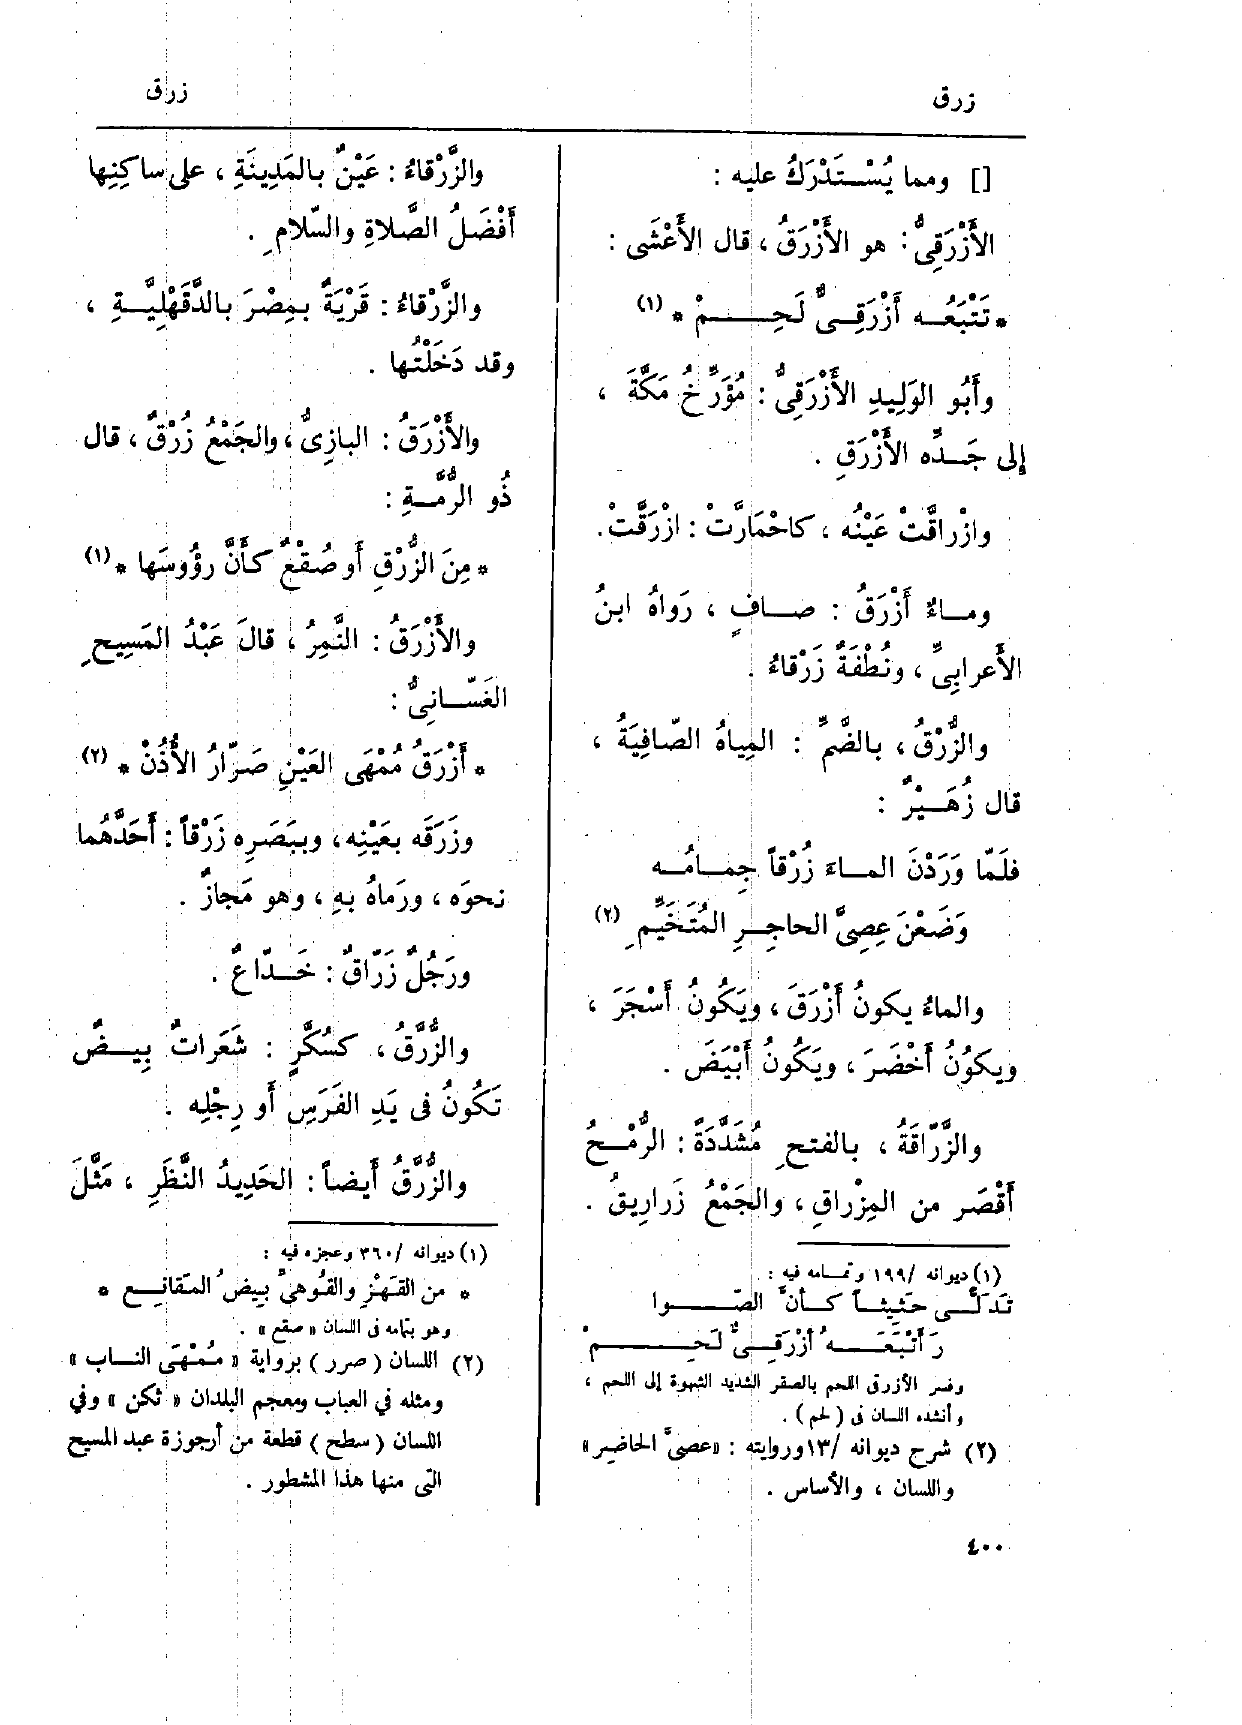 زرق
زرق
[] ومما يُسْـتَدْرَكُ عليه :
الأَزْرَقِىُّ : هو الأَزْرَقُ ، قال الأَعْشَى :
* تَتْبَعُـه أَزْرَقِـىٌّ لَحِـمْ * (١)
وأَبُو الوَلِيدِ الأَزْرَقِىُّ : مُؤَرِّخُ مَكَّةَ ،
إلى جَـدِّه الأَزْرَقِ .
وازْراقَّتْ عَيْنُه ، كاحْمَارَّتْ : ازْرَقَّتْ .
ومـاءٌ أَزْرَقُ : صـافٍ ، رَواهُ ابنُ
الأَعرابِىِّ ، ونُطْفَةٌ زَرْقاءُ .
والزُّرْقُ ، بالضَّمِّ : المِياهُ الصّافِيَةُ ،
قال زُهَـيْرٌ :
فلَمّا وَرَدْنَ المـاءَ زُرْقاً جِمـامُـه
وَضَعْنَ عِصِىَّ الحاجِـرِ المُتَخَيِّمِ (٢)
والماءُ يكونُ أَزْرَقَ ، ويَكُونُ أَسْجَرَ ،
ويكوُنُ أَخْضَرَ ، ويَكُونُ أَبْيَضَ .
والزَّرّاقَةُ ، بالفتحِ مُشَدَّدَةً : الرُّمْـحُ
أَقْصَر من المِزْراقِ ، والجَمْعُ زَرارِيقُ .
(١) ديوانه /١٩٩ وتمـامه فيه :
تَدَلَّـى حَثِيثـاً كـأَنَّ الصِّـوا
رَ أَتْبَعَـهُ أَزْرَقِـىٌّ لَحِـمْ
وفسر الأزرق اللحم بالصقر الشديد الشهوة إلى اللحم ،
وأنشده اللسان فى ( لحم ) .
(٢) شرح ديوانه /١٣ وروايته : «عصىَّ الحاضِرِ»
واللسان ، والأَساس .
والزَّرْقاءُ : عَيْنٌ بالمَدِينَةِ ، على ساكِنِها
أَفْضَلُ الصَّلاةِ والسّلامِ .
والزَّرْقاءُ : قَرْيَةٌ بمِصْرَ بالدَّقَهْلِيَّـةِ ،
وقد دَخَلْتُها .
والأَزْرَقُ : البازِىُّ ، والجَمْعُ زُرْقٌ ، قال
ذُو الرُّمَّـةِ :
* مِنَ الزُّرْقِ أَو صُقْعٌ كأَنَّ رؤُوسَها * (١)
والأَزْرَقُ : النَّمِرُ ، قالَ عَبْدُ المَسِيحِ
الغَسّـانِىُّ :
* أَزْرَقُ مُمْهَى العَيْنِ صَرّارُ الأُذُنْ * (٢)
وزَرَقَه بعَيْنِه ، وببَصَرِه زَرْقاً : أَحَدَّهُما
نحوَه ، ورَماهُ بهِ ، وهو مَجازٌ .
ورَجُلٌ زَرّاقٌ : خَـدّاعٌ .
والزُّرَّقُ ، كسُكَّرٍ : شَعَراتٌ بِيـضٌ
تَكُونُ فى يَدِ الفَرَسِ أَو رِجْلِه .
والزُّرَّقُ أَيضاً : الحَدِيدُ النَّظَرِ ، مَثَّلَ
(١) ديوانه /٣٦٠ وعجزه فيه :
* من القَهْزِ والقُوهىِّ بِيضُ المَقانِـع *
وهو بتمامه فى اللسان « صقع » .
(٢) اللسان ( صرر ) برواية « مُمْهَى النـاب »
ومثله في العباب ومعجم البلدان « ثكن » وفي
اللسان ( سطح ) قطعة من أرجوزة عبد المسيح
التى منها هذا المشطور .
٤٠٠